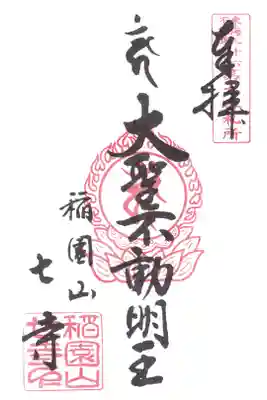 奉拝
大聖不動明王
稲園山
七寺
稲園山